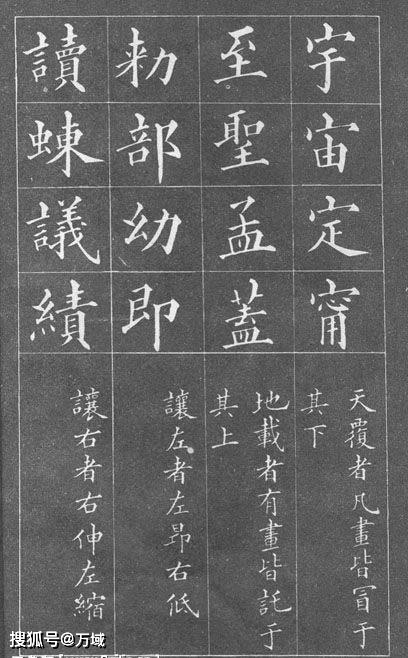 宇宙定甯
天覆者凡畫皆冒于
其下
至聖孟蓋
地載者有畫皆託于
其上
勑部幼即
讓左者左昂右低
讀蝀議績
讓右者右伸左縮
搜狐号@万域